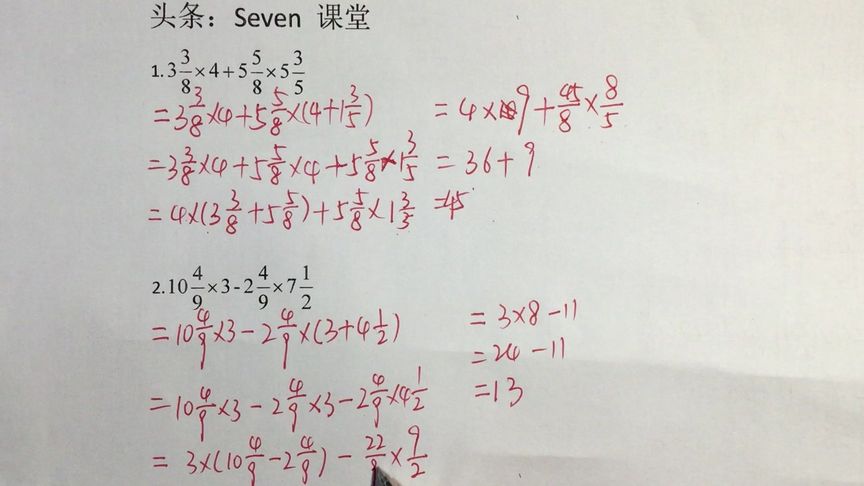 头条：Seven 课堂
1.3 3/8 ×4+5 5/8 ×5 3/5
=3 3/8 ×4+5 5/8 ×(4+1 3/5)
=3 3/8 ×4+5 5/8 ×4+5 5/8 ×1 3/5
=4×(3 3/8 +5 5/8)+5 5/8 ×1 3/5
=4×9+45/8×8/5
=36+9
=45
2.10 4/9 ×3-2 4/9 ×7 1/2
=10 4/9 ×3-2 4/9 ×(3+4 1/2)
=10 4/9 ×3-2 4/9 ×3-2 4/9 ×4 1/2
=3×(10 4/9 -2 4/9)-22/9×9/2
=3×8-11
=24-11
=13